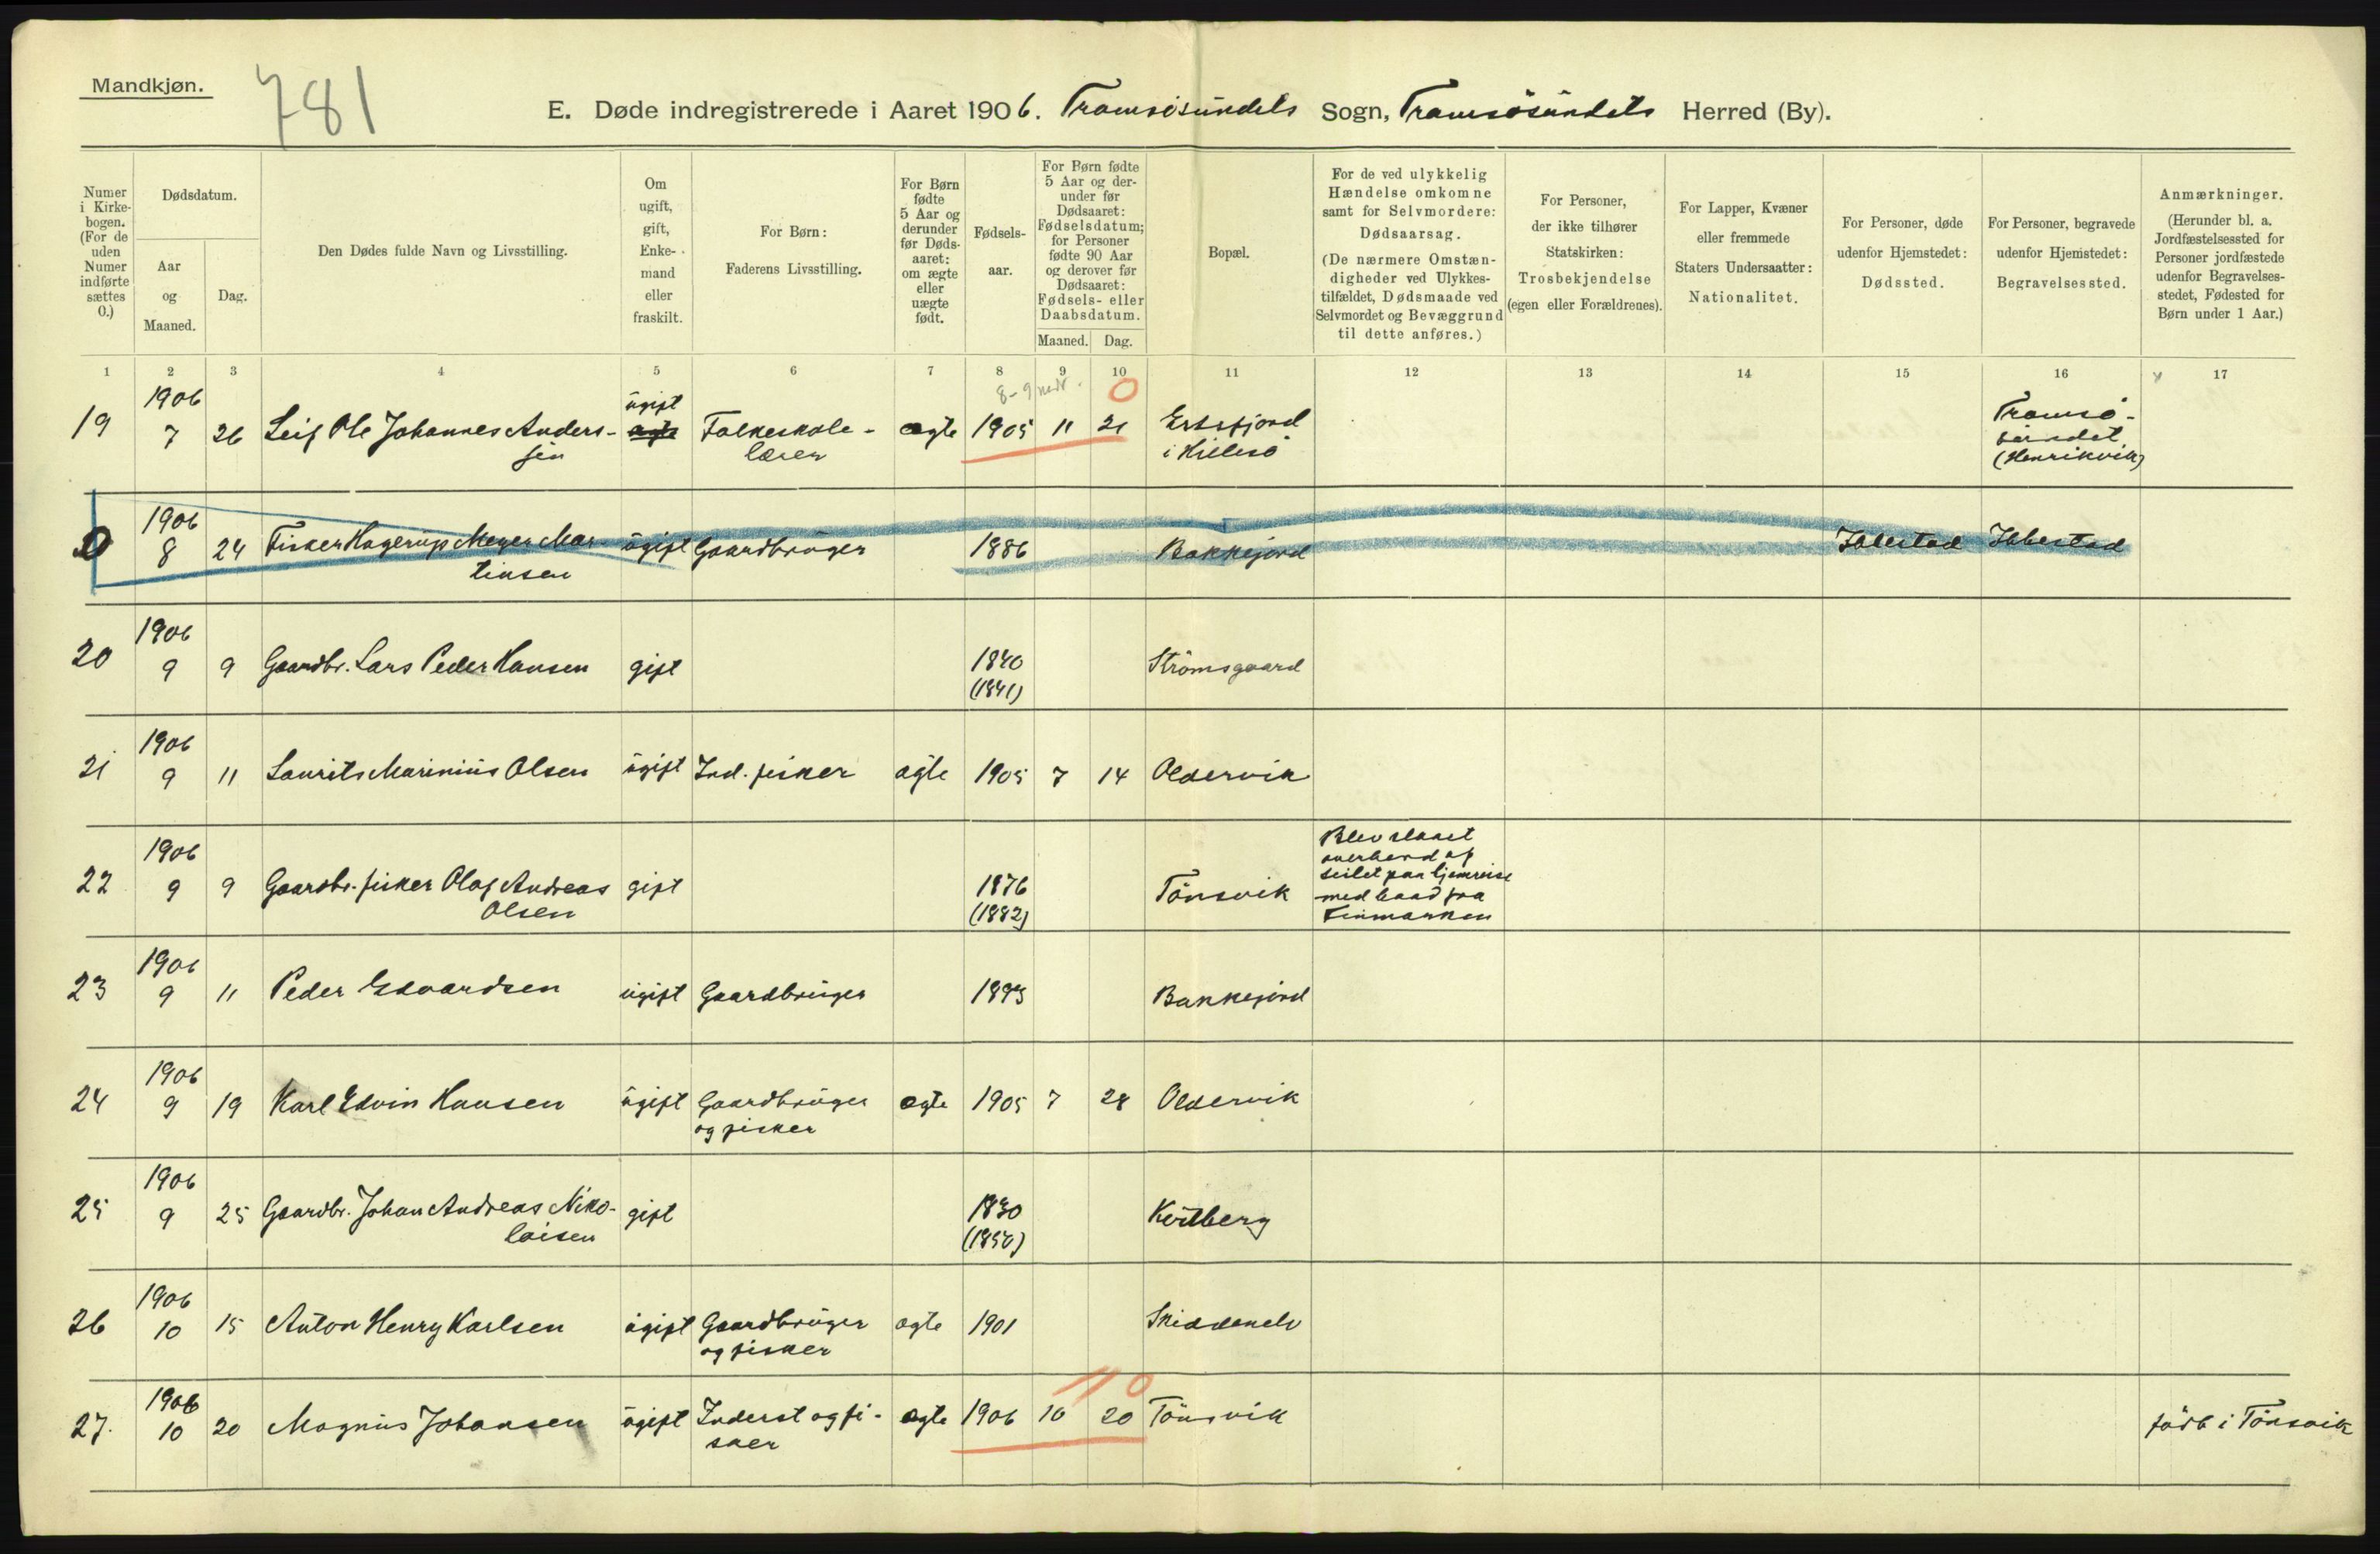 Mandkjøn.
781
E. Døde indregistrerede i Aaret 1906. Tromsøsundets Sogn, Tromsøsundets Herred (By).
Numer i Kirkebogen. (For de uden Numer indførte sættes 0.)
Dødsdatum.
Aar og Maaned.
Dag.
Den Dødes fulde Navn og Livsstilling.
Om ugift, gift, Enkemand eller fraskilt.
For Børn: Faderens Livsstilling.
For Børn fødte 5 Aar og derunder før Dødsaaret: om ægte eller uægte født.
Fødselsaar.
For Børn fødte 5 Aar og derunder før Dødsaaret: Fødselsdatum; for Personer fødte 90 Aar og derover før Dødsaaret: Fødsels- eller Daabsdatum.
Maaned. Dag.
Bopæl.
For de ved ulykkelig Hændelse omkomne samt for Selvmordere: Dødsaarsag. (De nærmere Omstændigheder ved Ulykkestilfældet, Dødsmaade ved Selvmordet og Bevæggrund til dette anføres.)
For Personer, der ikke tilhører Statskirken: Trosbekjendelse (egen eller Forældrenes).
For Lapper, Kvæner eller fremmede Staters Undersaatter: Nationalitet.
For Personer, døde udenfor Hjemstedet: Dødssted.
For Personer, begravede udenfor Hjemstedet: Begravelsessted.
Anmærkninger. (Herunder bl. a. Jordfæstelsessted for Personer jordfæstede udenfor Begravelsesstedet, Fødested for Børn under 1 Aar.)
1 2 3 4 5 6 7 8 9 10 11 12 13 14 15 16 17
19 1906 7 26 Leif Ole Johannes Anderssen ugift Folkeskolelærer ægte 1905 11 21 Ersfjord i Hillesö Tromsösundet (Henrikvik)
8-9 mdr. 0
0 1906 8 24 Fisker Hagerup Meyer Martinsen ugift Gaardbruger 1886 Bakkejord Ibbestad Ibbestad
20 1906 9 9 Gaardbr. Lars Peder Hansen gift 1840 (1841) Strömsgaard
21 1906 9 11 Laurits Marinius Olsen ugift Ind. fisker ægte 1905 7 14 Oldervik
22 1906 9 9 Gaardbr. fisker Olaf Andreas Olsen gift 1876 (1882) Tönsvik Blev slaaet overbord af seilet paa hjemreise med baad fra Finmarken
23 1906 9 11 Peder Edvardsen ugift Gaardbruger 1893 Bakkejord
24 1906 9 19 Karl Edvin Hansen ugift Gaardbruger og fisker ægte 1905 7 28 Oldervik
25 1906 9 25 Gaardbr. Johan Andreas Nikolaisen gift 1830 (1850) Kvitberg
26 1906 10 15 Anton Henry Karlsen ugift Gaardbruger og fisker ægte 1901 Skiddenelv
27. 1906 10 20 Magnus Johansen ugift Inderst og fisker ægte 1906 10 20 Tönsvik född i Tönsvik